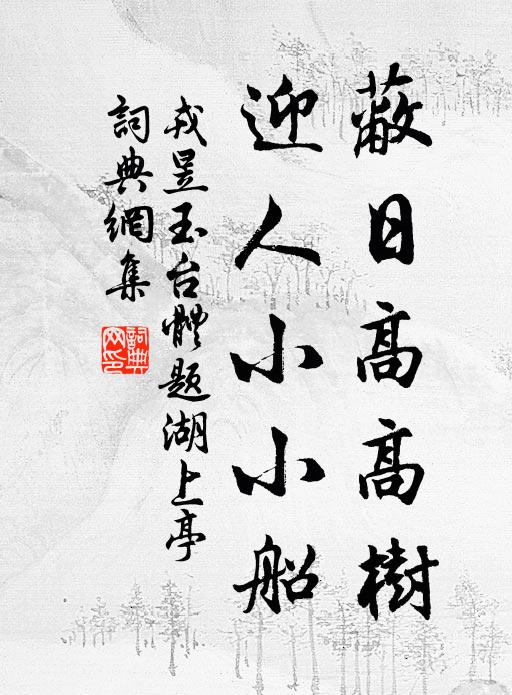 蔽日高高樹
迎人小小船
戎昱玉台體題湖上亭
詞典網集
詞典
網印